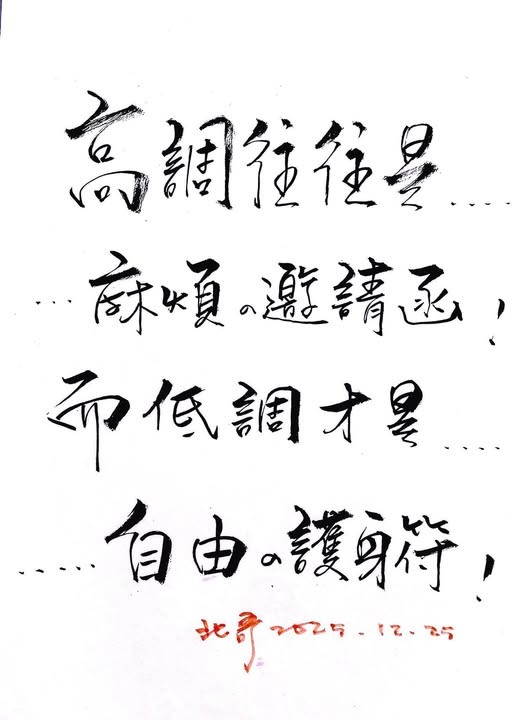 高調往往是....
...麻煩の邀請函!
而低調才是....
.....自由の護身符!
北哥2025.12.25